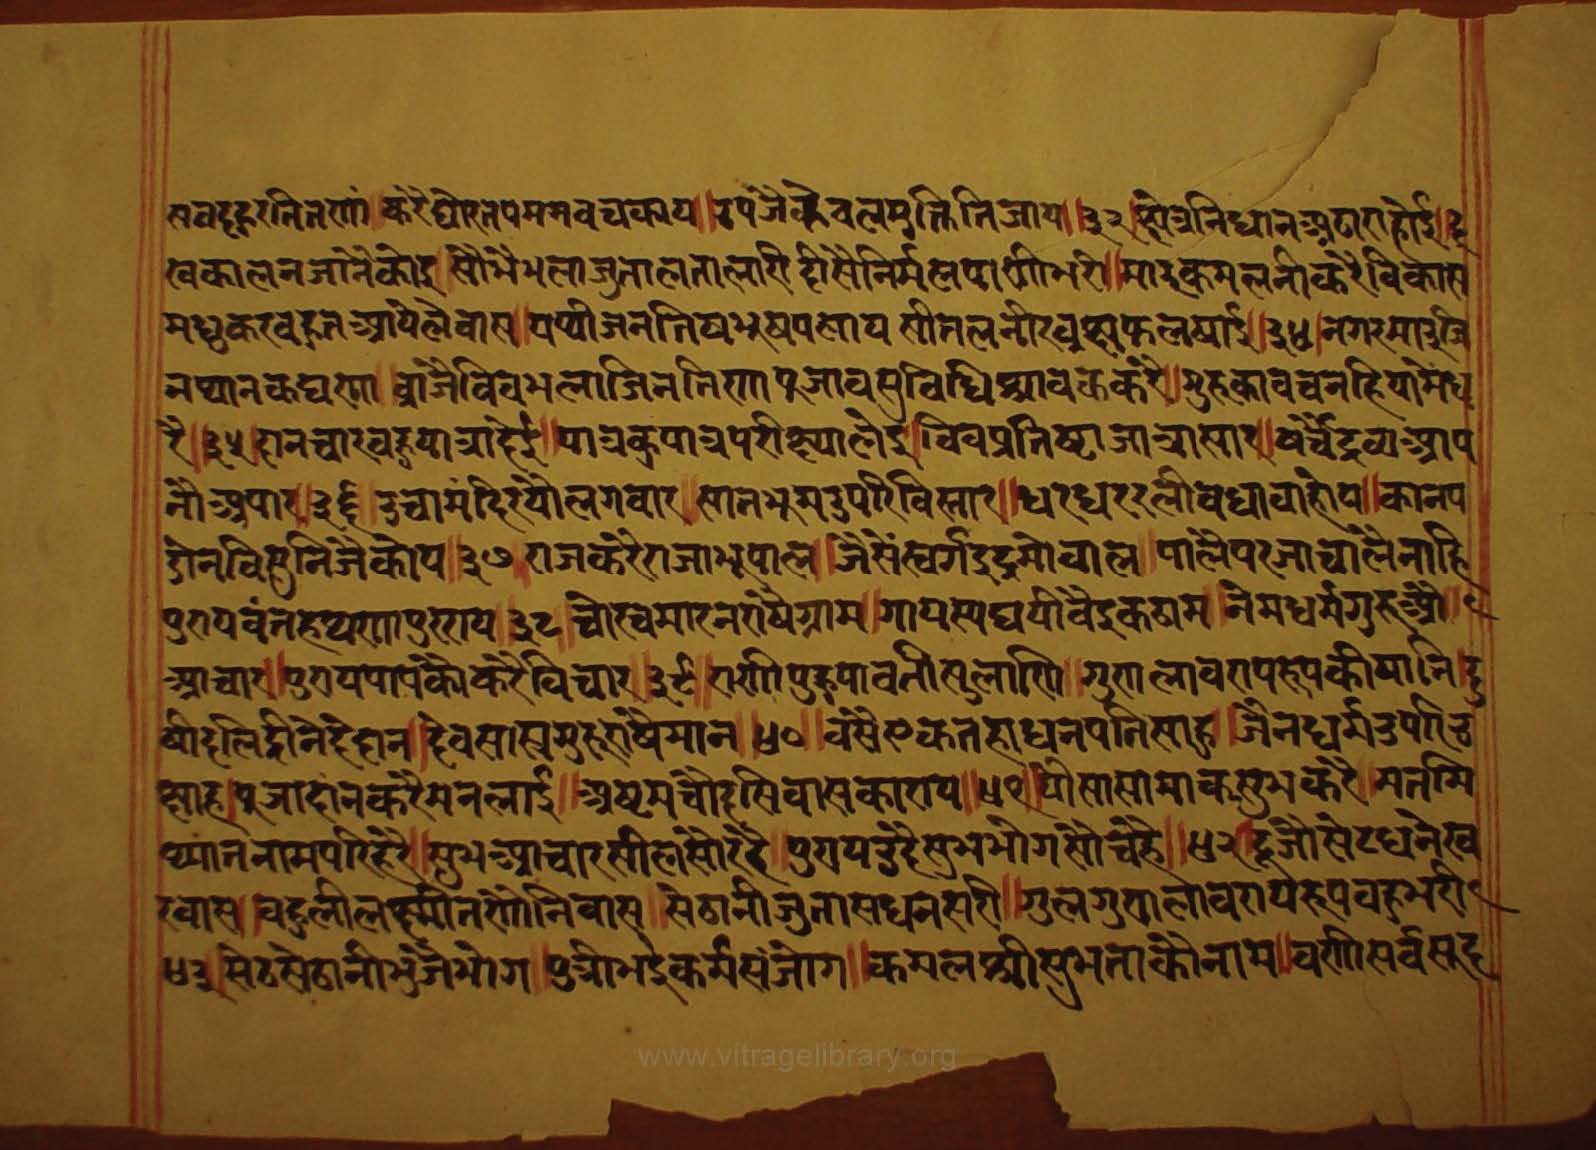 सवददूरतितणां॥ करैघोरतपममवचकाय॥ उपजैकेवलमुक्तितिजाय॥३३॥ होत्रनिधानअठाराहोई॥दू
खकालनजांनैकोइ॥सोभैभलाजुतालतालारी दीसैनिर्मलपाणीभरी॥मांइकमलनीकरैविकास
मधुकरवहूतआयेलैवास॥पंथीजनतिषभुषपलाय सीतलनीरवृक्षफलषाई॥३४॥नगरमांइजि
नथानकघणा॥ब्राजैविंवभलाजिनतिणा पुजावसुविधिश्रावककरै॥गुरुकावचनहियामैंध
रै॥३५॥दानचारवहुपात्राहेई॥पात्रकुपात्रपरीक्ष्यालेइ॥विंवप्रतिष्टाजात्रासार॥षर्चैद्रव्यआप
नौअपार॥३६॥उचामंदिरपौलगवार॥सातभूमउपरिविस्तार॥घरघररलीवधावाहोय॥कानप
डोनविसुनिजैकोय॥३७॥राजकरैराजाभूपाल॥जैसैंस्वर्गइंद्रमोवाल॥पालैपरजाचालैनाहि
पुरायवंतहथणापुरराय॥३८॥चोरचमारनराषैग्राम॥गायस्यघपीवैइकठाम॥नेमधर्मगुरुऔ
आचार॥पुरायपापकोकरैविचार॥३९॥राणीपुहपावतीसुलाणि॥गुराालावरापरूपकीषांनि॥दु
षीदलिद्रीनैदेदान॥देवसास्त्रगुरुराषैमान॥४०॥वंसैएकतहाधनपतिसाह॥जैनधर्मउपरिउ
छाह॥पूजादांनकरैमनलाई॥अष्टमचौदसिवासकाराय॥४१॥पोसासामाकसुभकरै॥मतमि
थ्यातनामपरिहरै॥सुभआचारसीलसोरहै॥पुरायउदैसुभभोगसोचहै॥४२॥दूजौसेटधनेस्व
रवास॥वहुलीलक्ष्मीतणोनिवास॥सेठानीजुतासधनसरी॥गुलगुरालावरायरूपवहुभरी
४३॥सेठसेठानीभुंजैभोग॥पुत्रीभईकर्मसंजोग॥कमलश्रीसुभताकोनाम॥वणीसर्वसरद
www.vitragelibrary.org